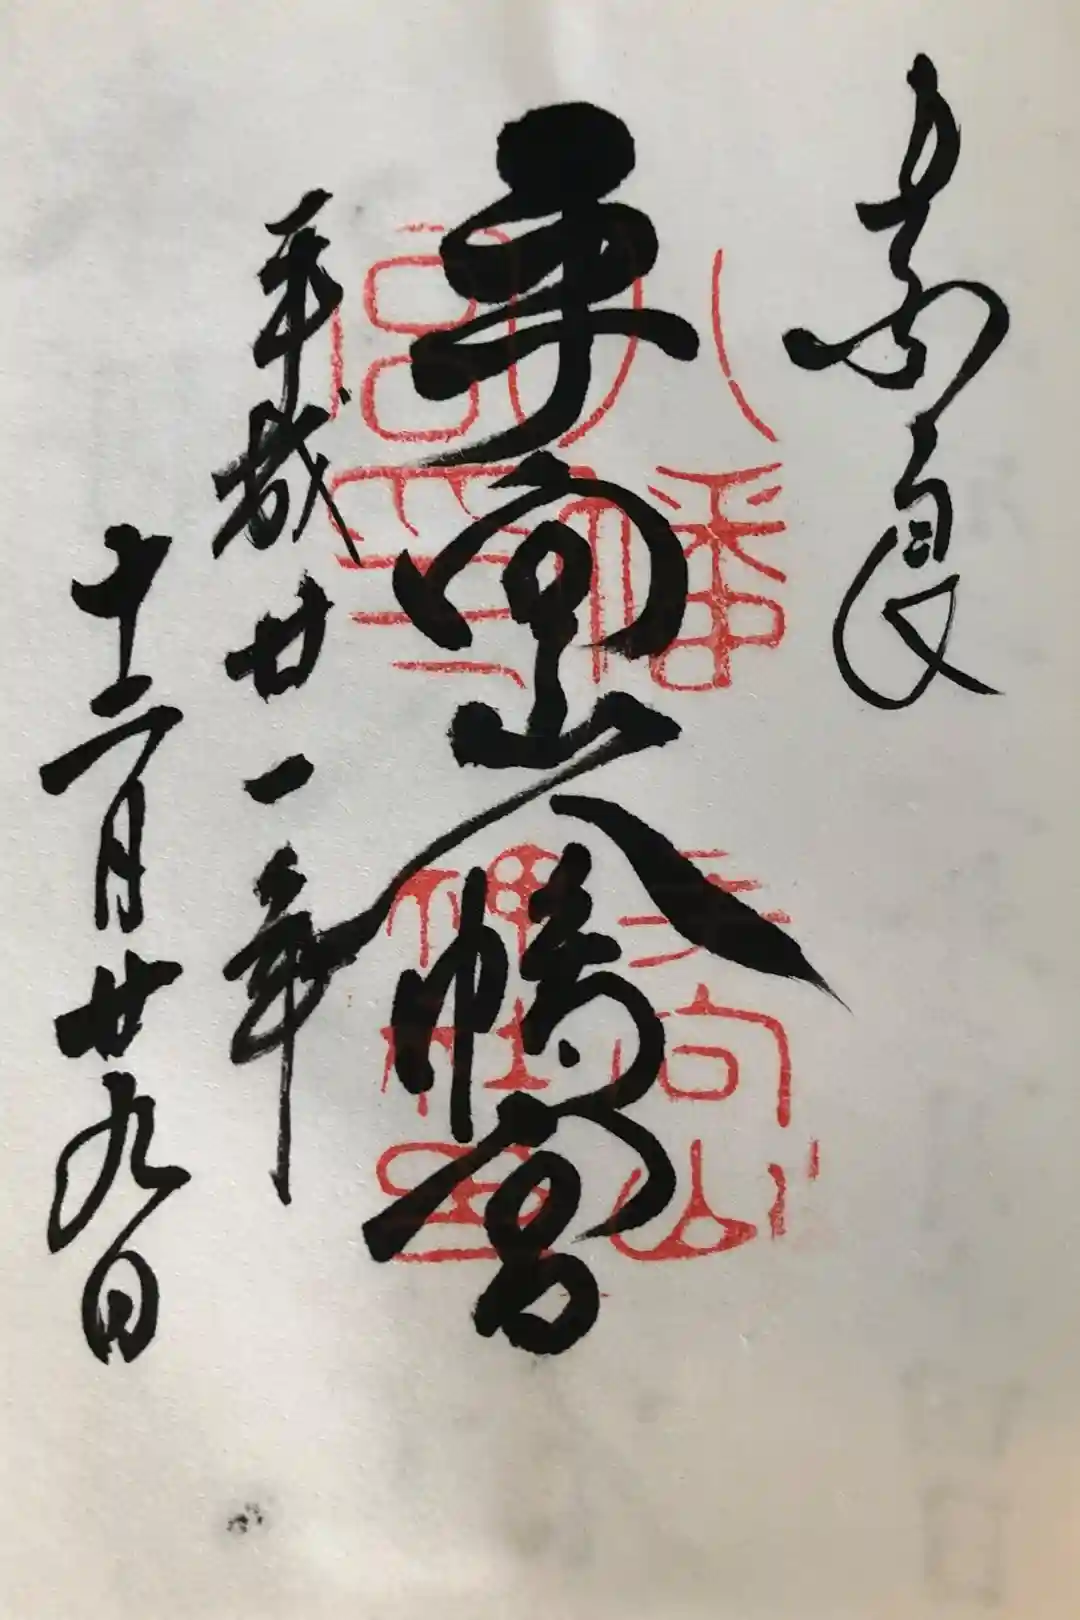 奈良
手向山八幡宮
平成廿一年
十二月廿九日
八幡宮印